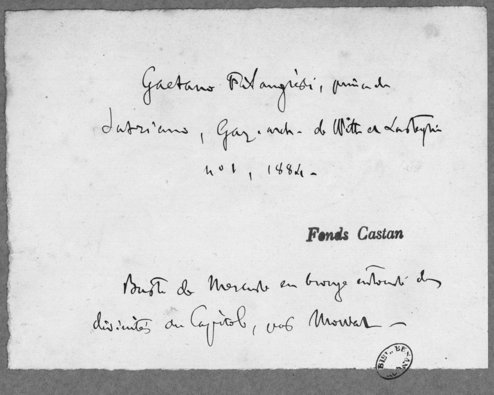 Gaetano Filangieri, prince de
Satriano, Gaz. arch. de Witte et Lasteyrie
n° 1, 1884.
Fonds Castan
Buste de Mercure en bronze entouré des
divinités du Capitole, par Mowat